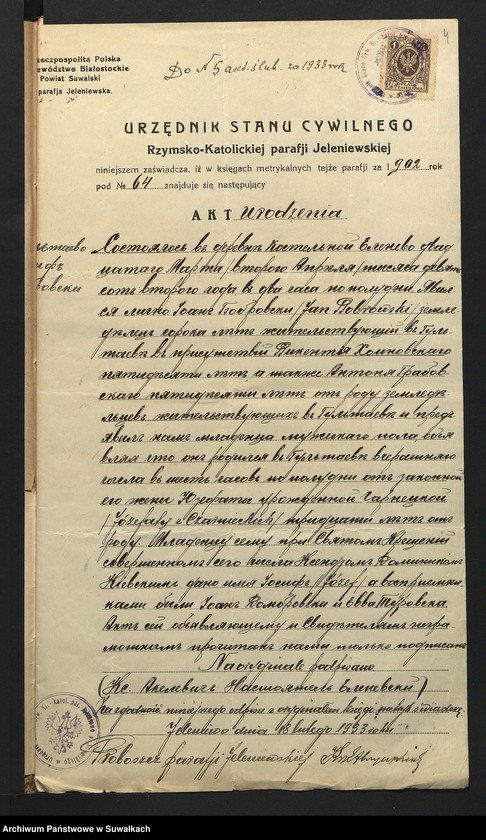 Rzeczpospolita Polska
Województwo Białostockie
Powiat Suwalski
parafja Jeleniewska.
Do N 5 akt. ślub. za 1933 rok
4
URZĘDNIK STANU CYWILNEGO
Rzymsko-Katolickiej parafji Jeleniewskiej
niniejszem zaświadcza, iż w księgach metrykalnych tejże parafji za 1902 rok
pod № 64 znajduje się następujący
AKT Urodzenia
Состоялось въ деревнѣ Костельной Еленево двад
цатаго Марта /второго Апрѣля/ тысяча девять
сотъ второго года въ два часа по полудни. Явил
ся лично Іоанъ Бобровски /Jan Bobrowski/ земле
дѣлецъ сорока лѣтъ жительствующій въ Гуль
таевѣ въ присутствіи Викентія Хомковскаго
пятидесяти лѣтъ а также Антонія Грабов
скаго пятидесяти лѣтъ отъ роду земледѣ
льцевъ жительствующихъ въ Гультаевѣ и предъ
явилъ намъ младенца мужскаго пола объя
вляя что онъ родился въ Гультаевѣ вчерашняго
числа въ шесть часовъ по полудни отъ законной
его жены Юзефаты урожденной Чарнецкой
/Józefaty z Czarnieckich/ тридцати лѣтъ отъ
роду Младенцу сему при Святомъ Крещеніи
совершенномъ сего числа Ксендзомъ Доминикомъ
дано имя Іосифъ /Józef/ а воспріемни
ками были Іоанъ Домбровски и Евва Туровска
Актъ сей объявляющему и Свидѣтелямъ негра
мотнымъ прочитанъ нами только подписанъ
Na oryginale podpisano
(Кс. Акелевичъ Настоятель Еленевски)
Za zgodność niniejszego odpisu z oryginałem księgi metryk. świadczę.
Jeleniewo dnia 18 lutego 1933 roku
Proboszcz parafji Jeleniewskiej
Archiwum Państwowe w Suwałkach